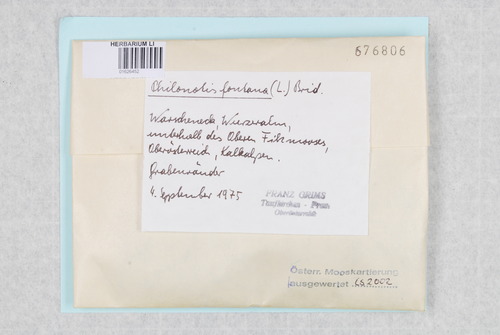 HERBARIUM LI
676806
Philonotis fontana (L.) Brid.
Warscheneck, Wurzeralm,
unterhalb des Oberen Filzmooses,
Oberösterreich, Kalkalpen.
Grabenränder
4. September 1975
FRANZ GRIMS
Taufkirchen - Pram
Oberösterreich
Österr. Mooskartierung
ausgewertet LS 2002